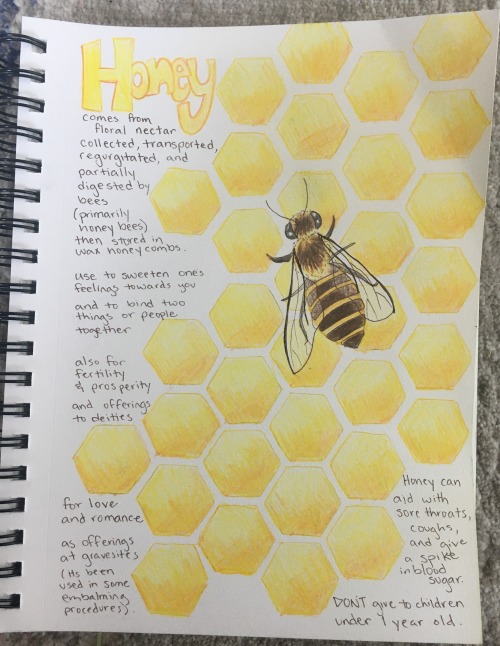 Honey
comes from
floral nectar
collected, transported,
regurgitated, and
partially
digested by
bees
(primarily
honey bees)
then stored in
wax honey combs.
use to sweeten one's
feelings towards you
and to bind two
things or people
together
also for
fertility
& prosperity
and offerings
to deities
for love
and romance
as offerings
at gravesites
(Its been
used in some
embalming
procedures).
Honey can
aid with
sore throats,
coughs,
and give
a spike
in blood
sugar.
DON'T give to children
under 1 year old.